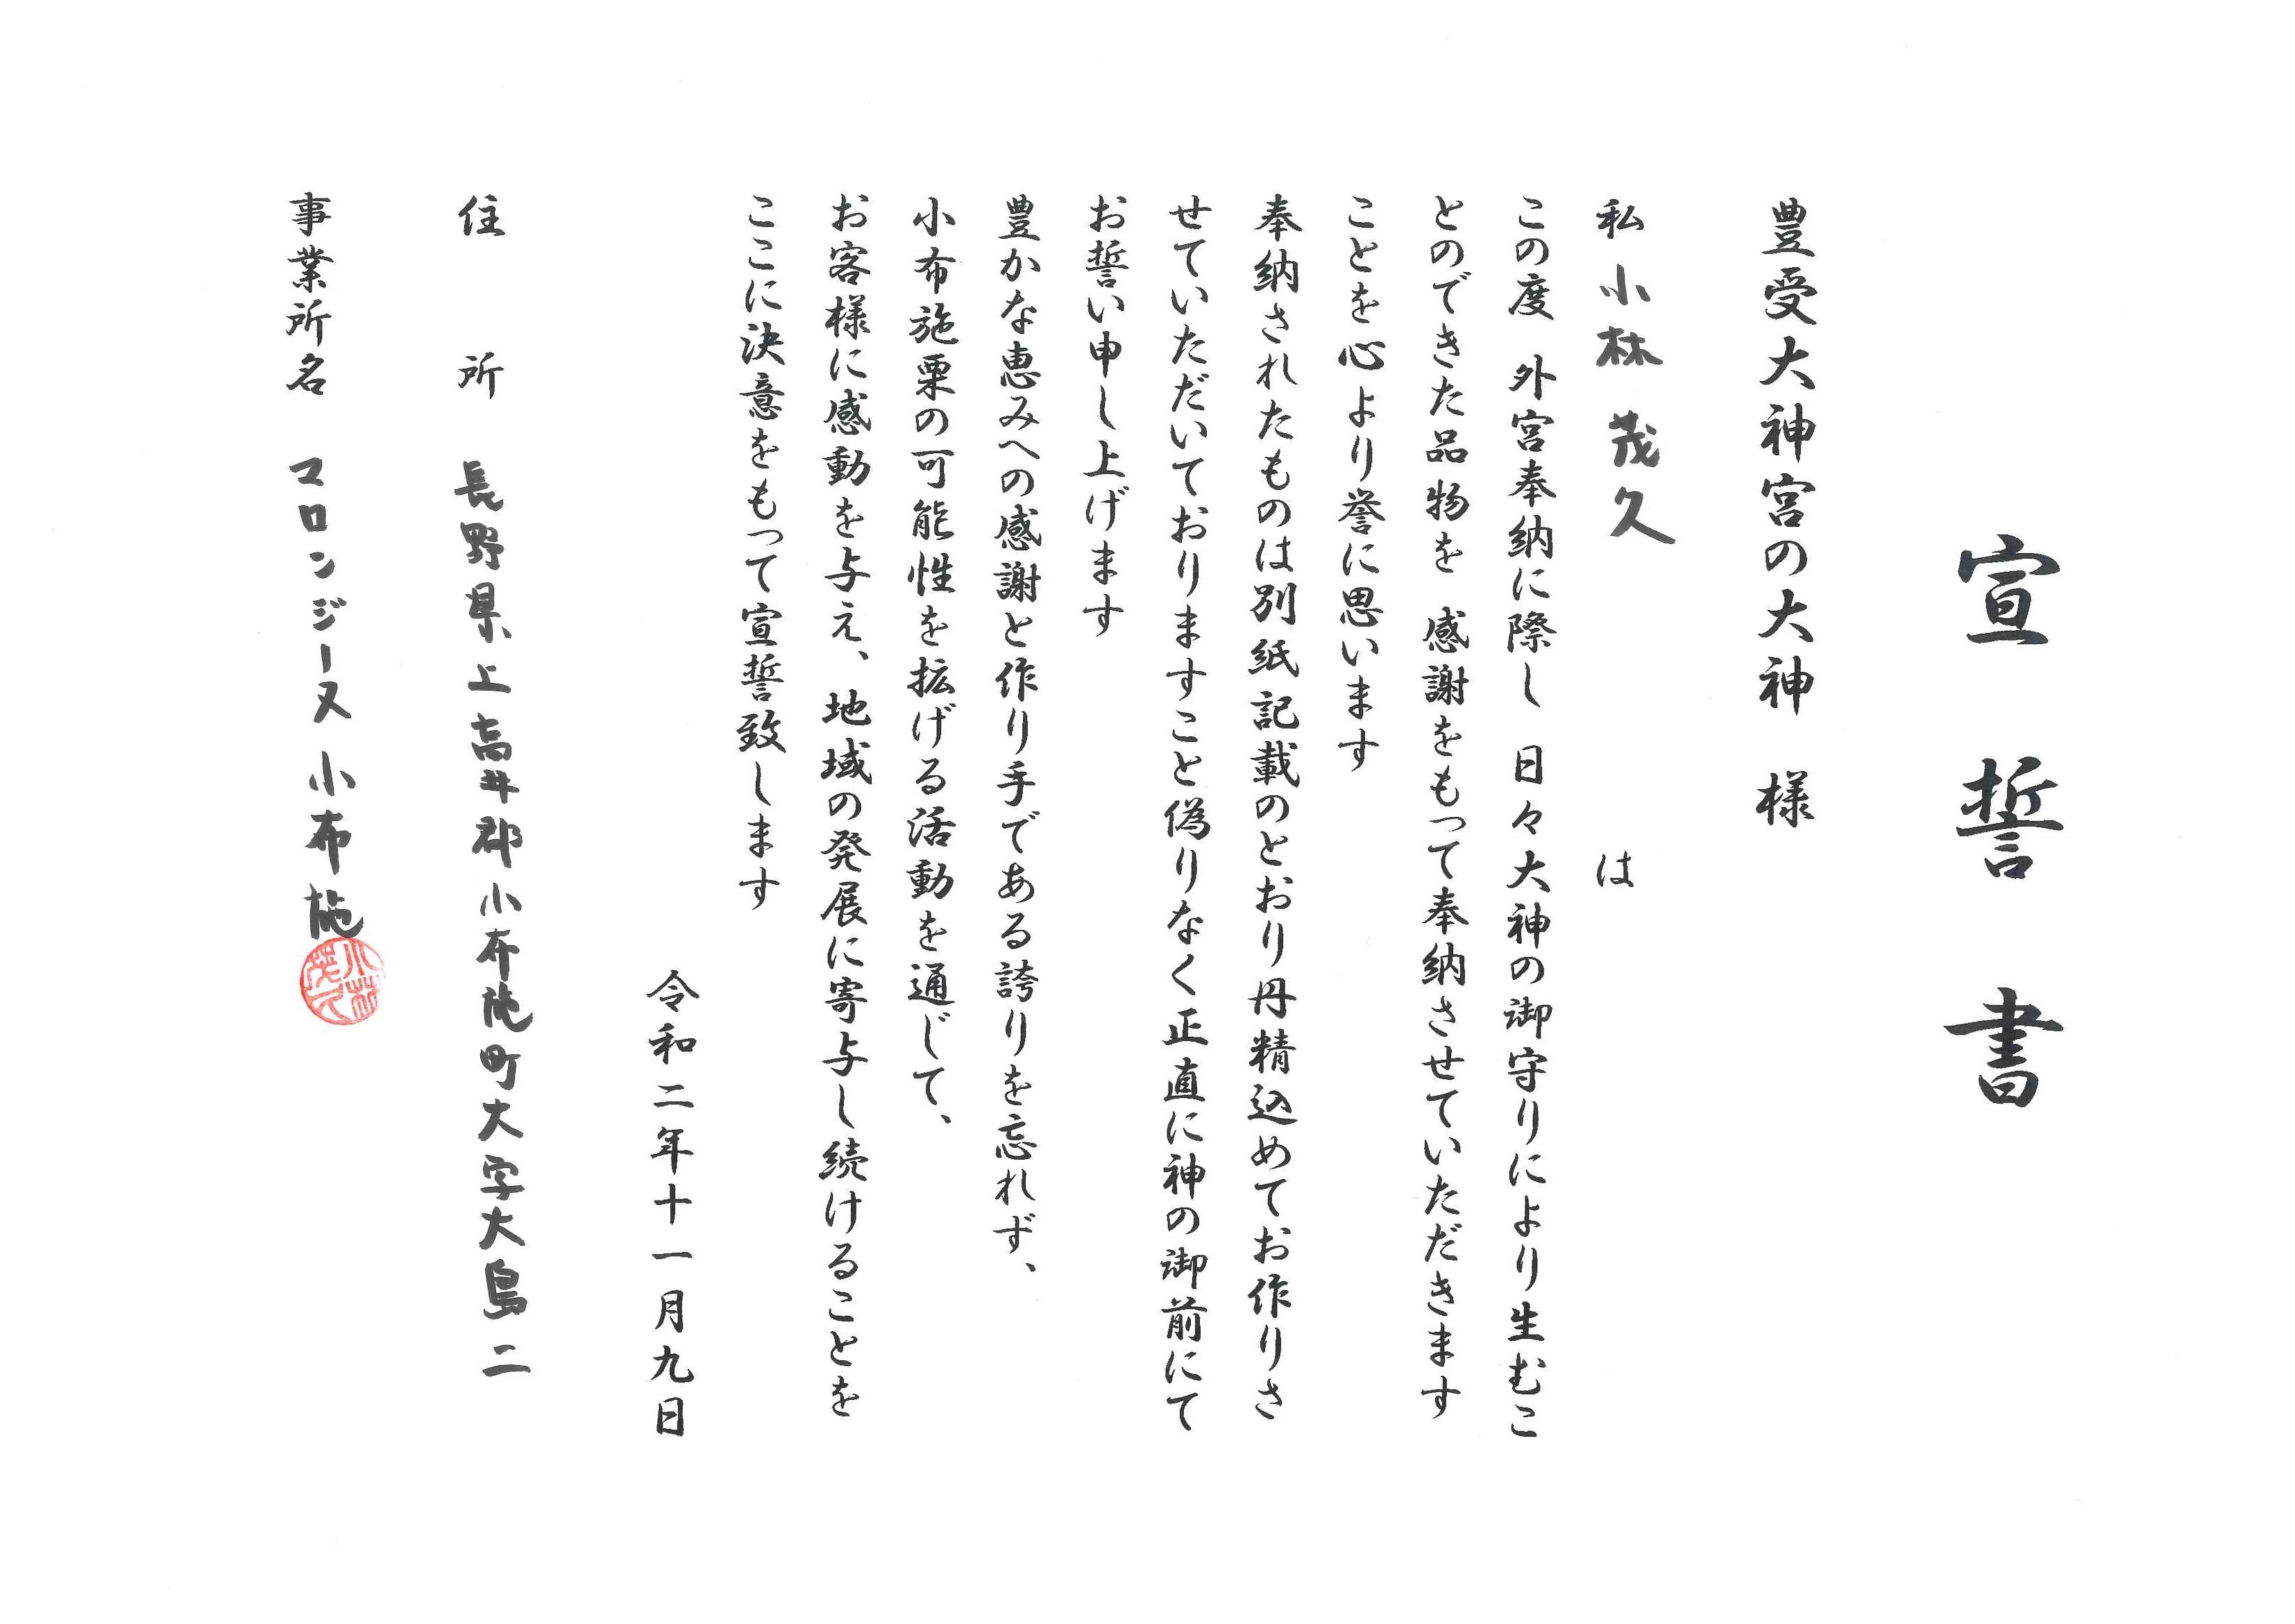 宣誓書
豊受大神宮の大神 様
私 小林 茂久 は
この度 外宮奉納に際し 日々大神の御守りにより生むこ
とのできた品物を 感謝をもって奉納させていただきます
ことを心より誉に思います
奉納されたものは別紙記載のとおり丹精込めてお作りさ
せていただいておりますこと偽りなく正直に神の御前にて
お誓い申し上げます
豊かな恵みへの感謝と作り手である誇りを忘れず、
小布施栗の可能性を拡げる活動を通じて、
お客様に感動を与え、地域の発展に寄与し続けることを
ここに決意をもって宣誓致します
令和二年十一月九日
住所 長野県上高井郡小布施町大字大島二
事業所名 マロンジーヌ小布施
小林茂久